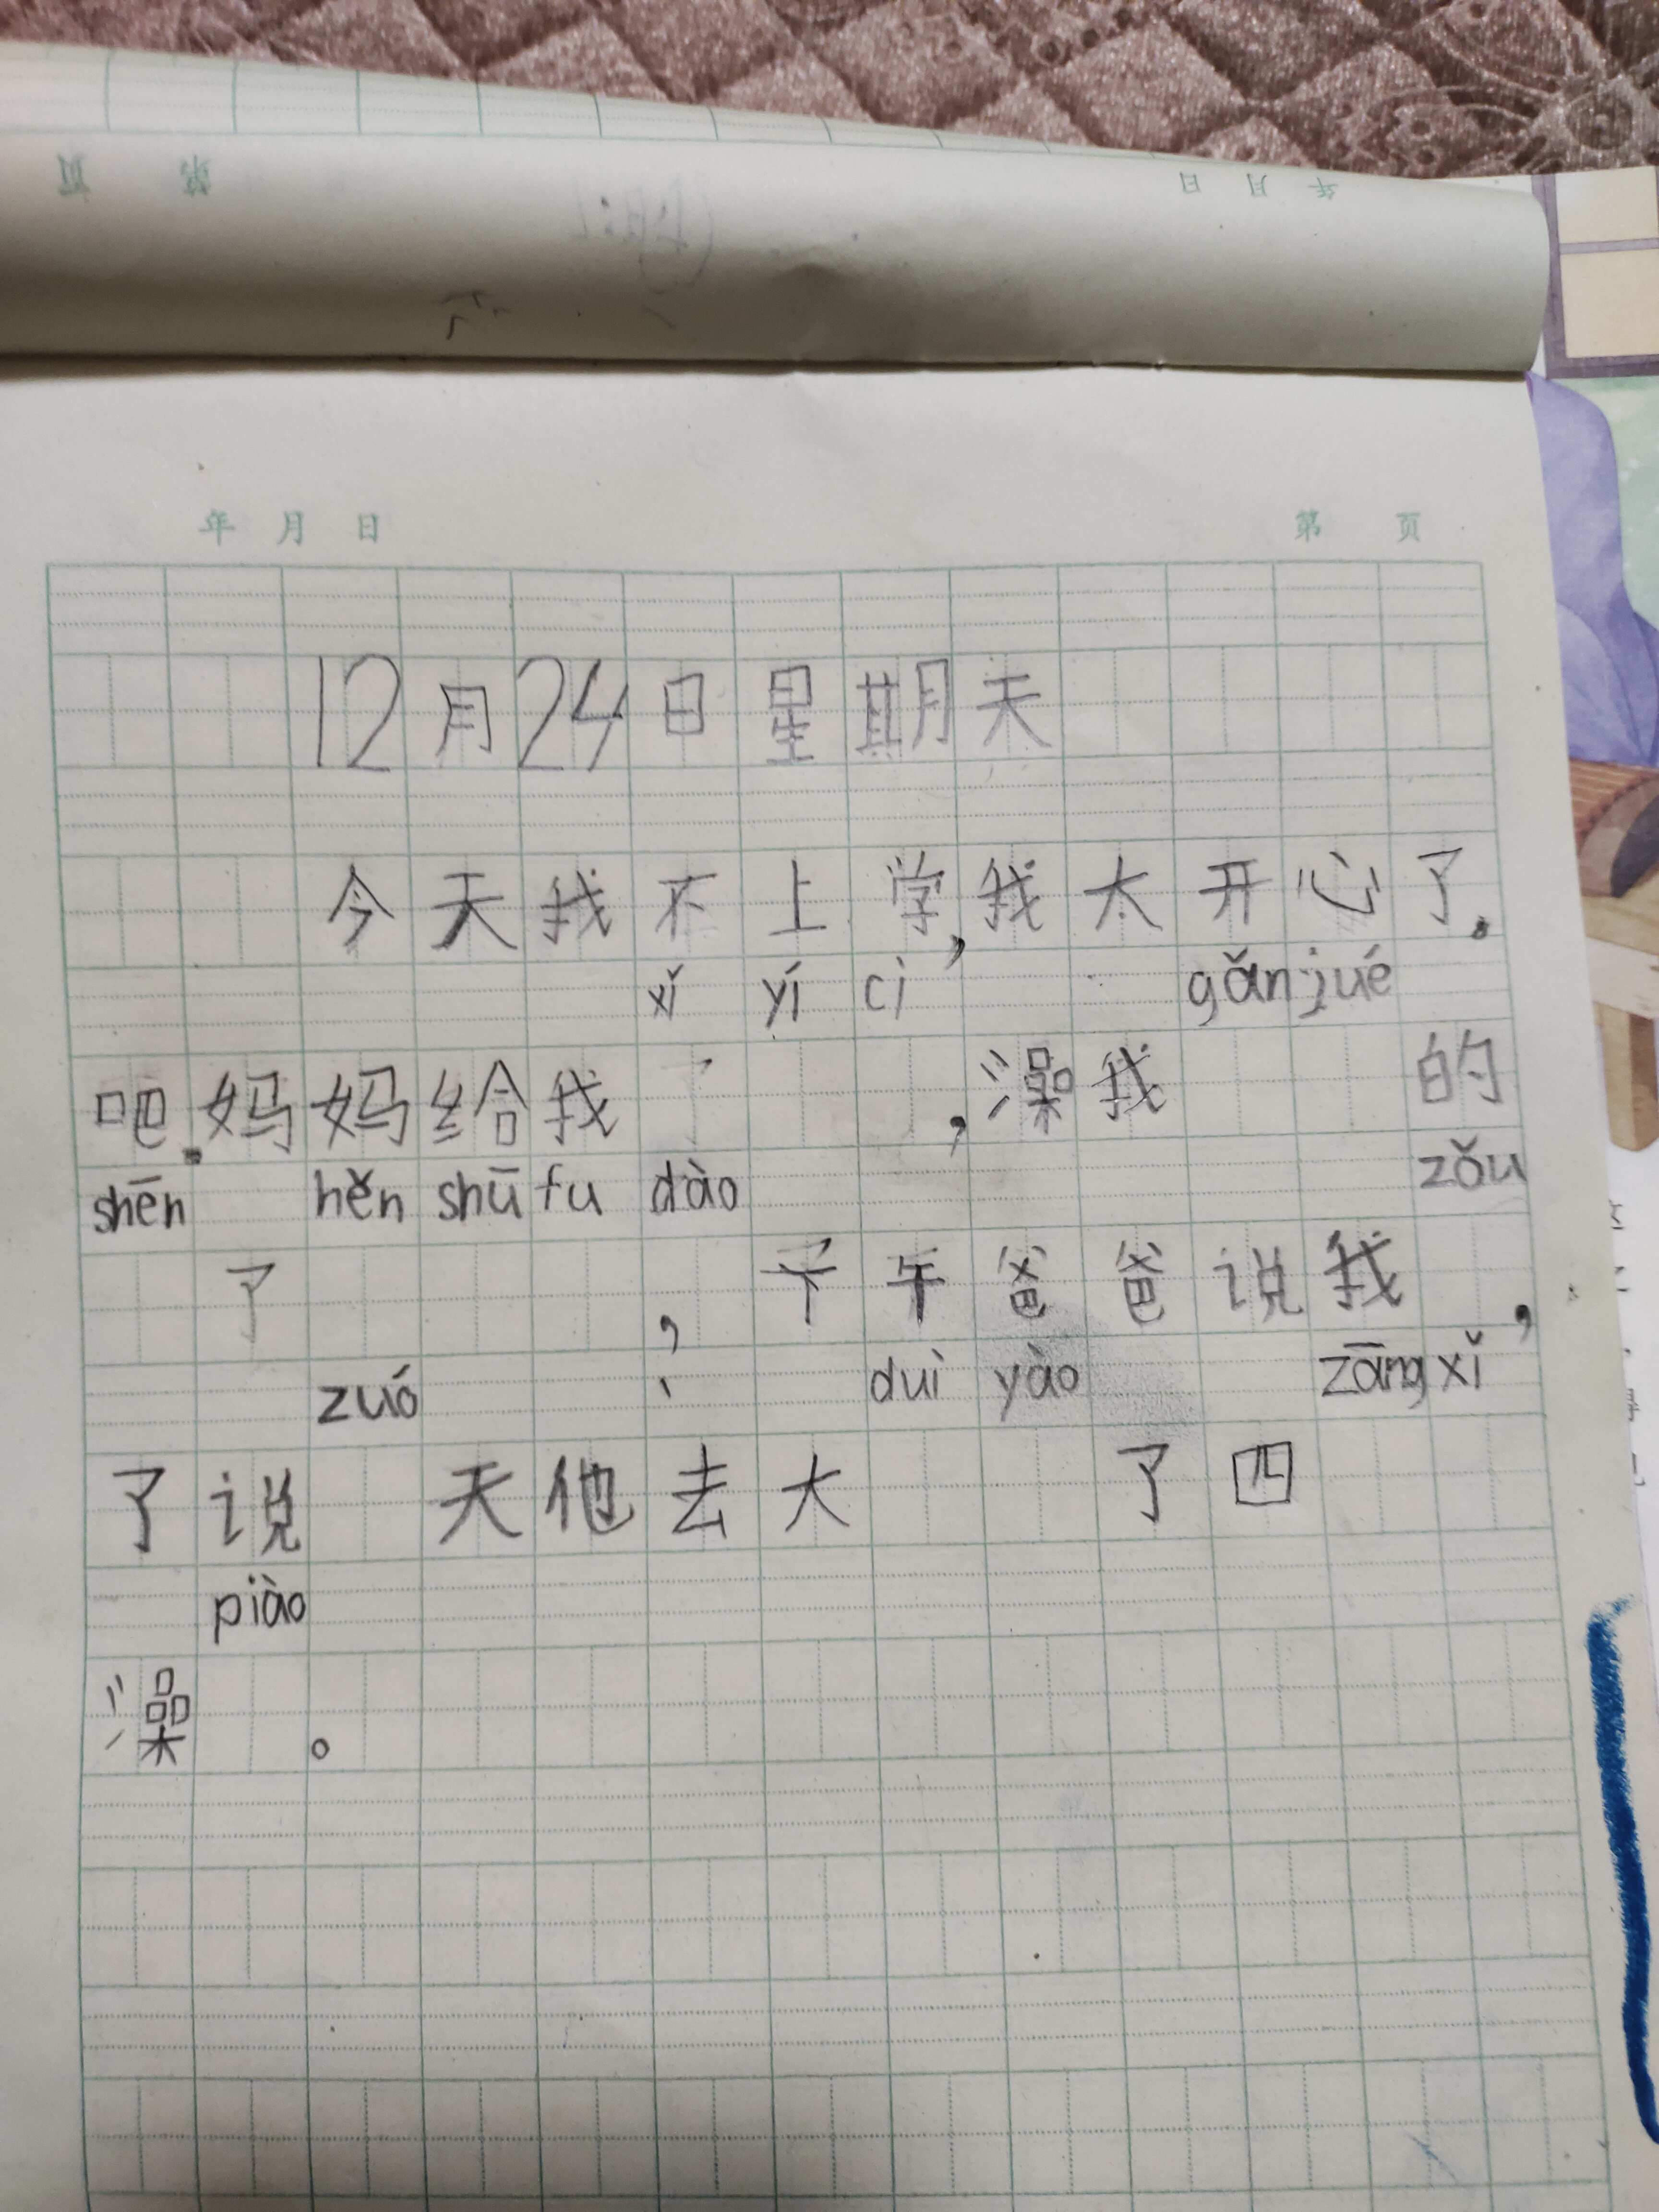 年 月 日 第 页
12月24日星期天
今天我不上学,我太开心了.
xǐ yí cì gǎn jué
吧.妈妈给我,澡我的
shēn hěn shū fu dào zǒu
了,下午爸爸说我,
zuó duì yào zāng xǐ
了说天他去大了四
piào
澡。